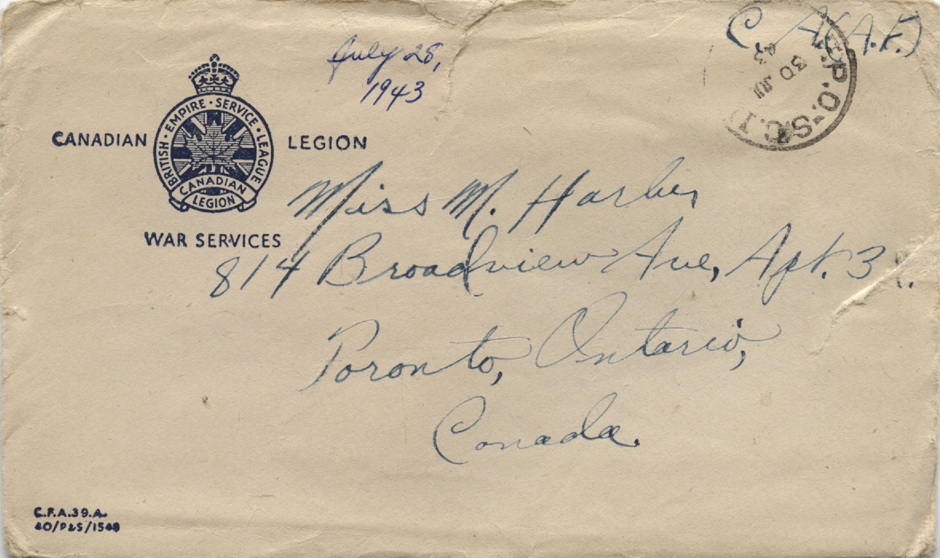 C.A.(A.F.)
July 28,
1943
F.P.O. S.C.
30 JUL
43
BRITISH · EMPIRE · SERVICE · LEAGUE
CANADIAN
LEGION
CANADIAN LEGION
WAR SERVICES
Miss M. Harley
814 Broadview Ave, Apt. 3
Toronto, Ontario,
Canada.
C.F.A.39.A.
40/P&S/1548